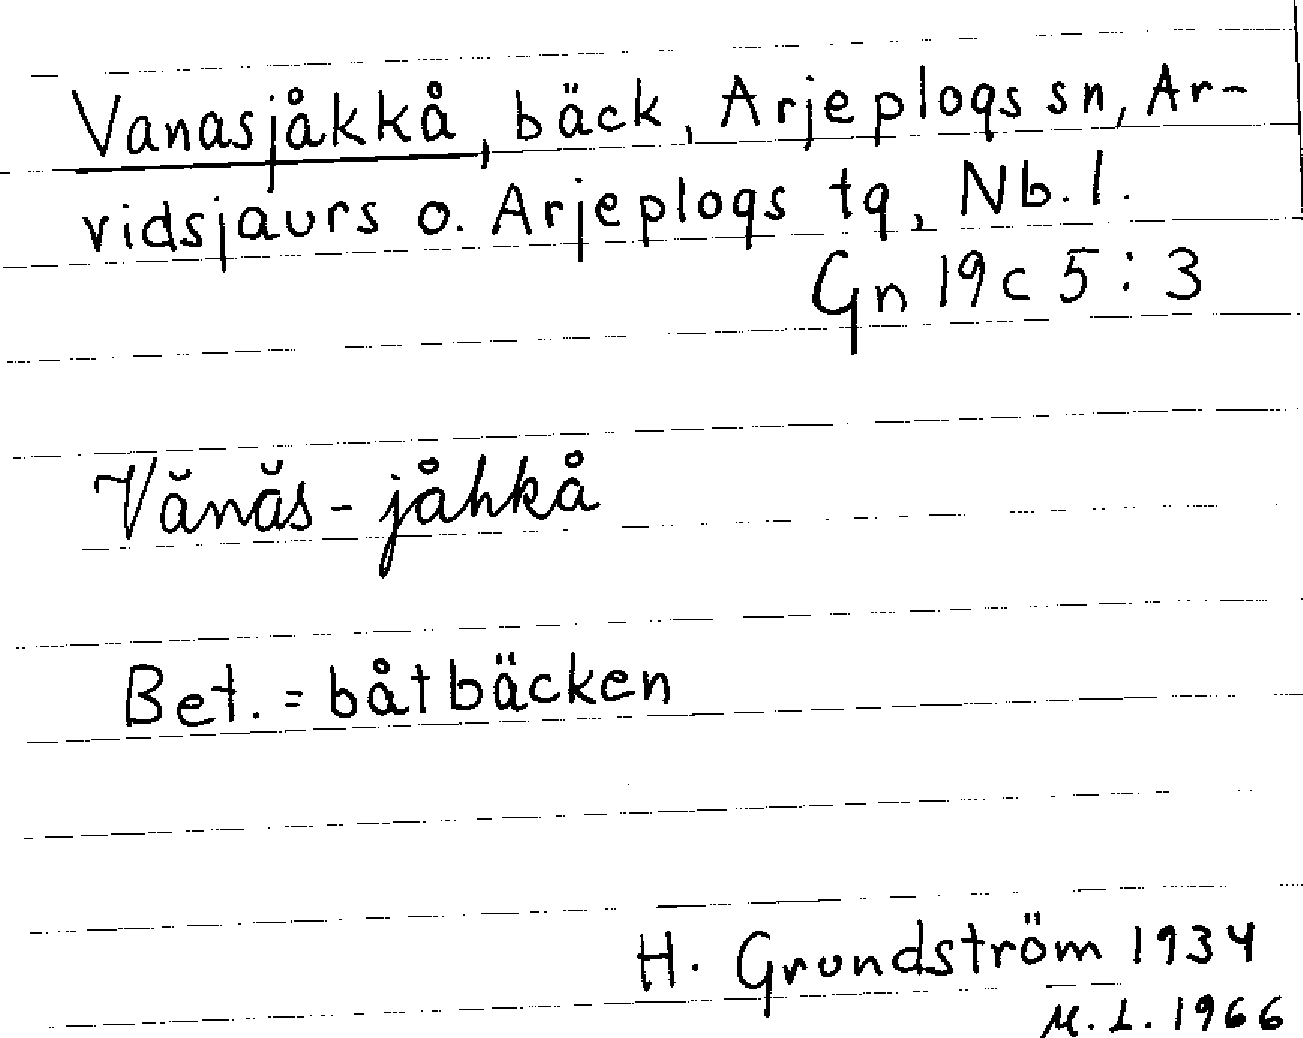 Vanasjåkkå, bäck, Arjeplogs sn, Ar-
vidsjaurs o. Arjeplogs tg, Nb. l.
Gn 19c 5:3
Vănăs-jåhkå
Bet. = båtbäcken
H. Grundström 1934
M. L. 1966